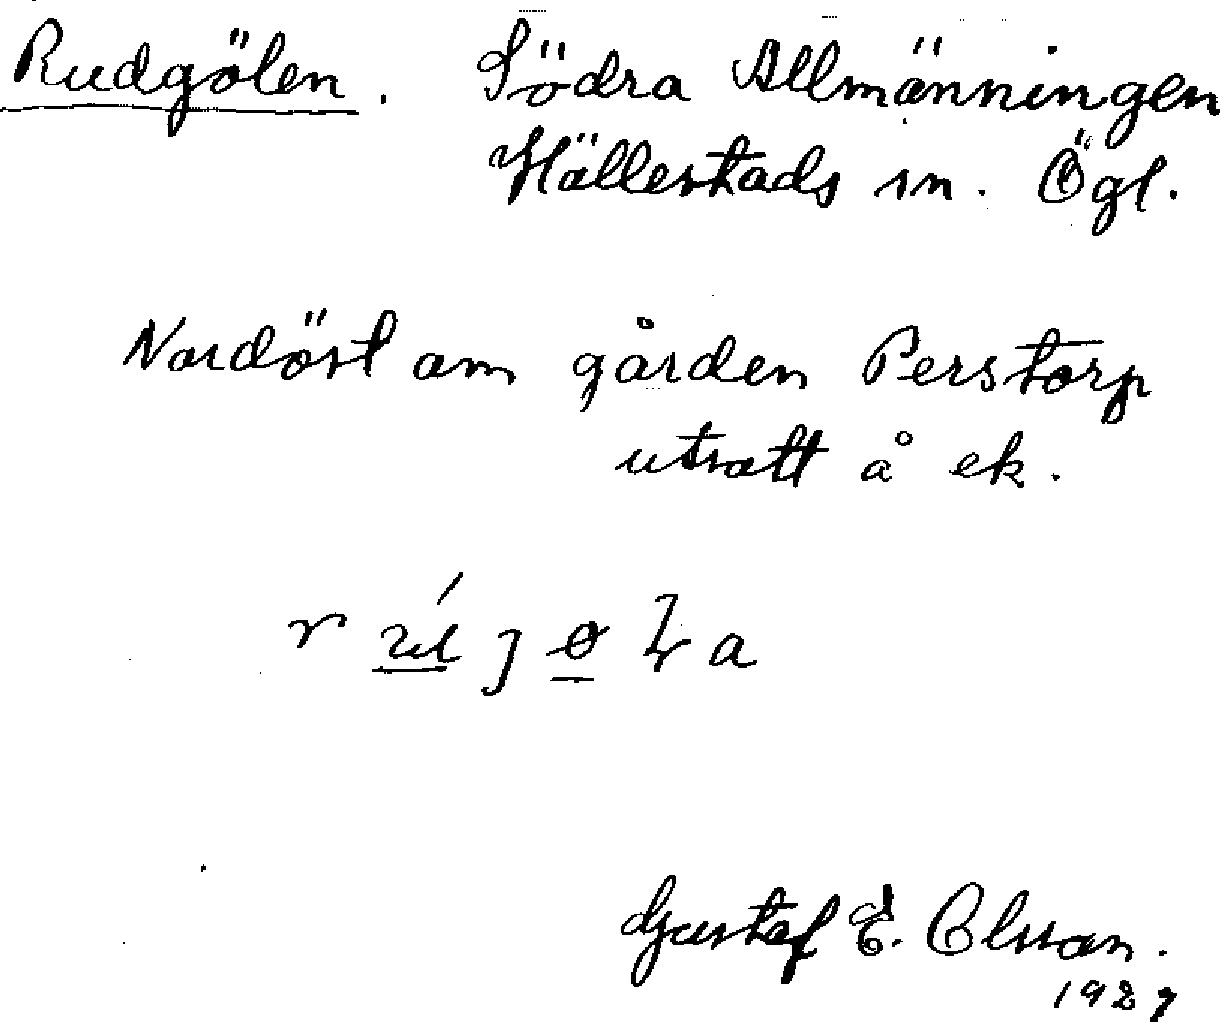 Rudgölen. Södra Allmänningen
Hällestads sn. Ögl.
Nordöst om gården Perstorp
utsatt å ek.
Gustaf E. Olsson.
1927